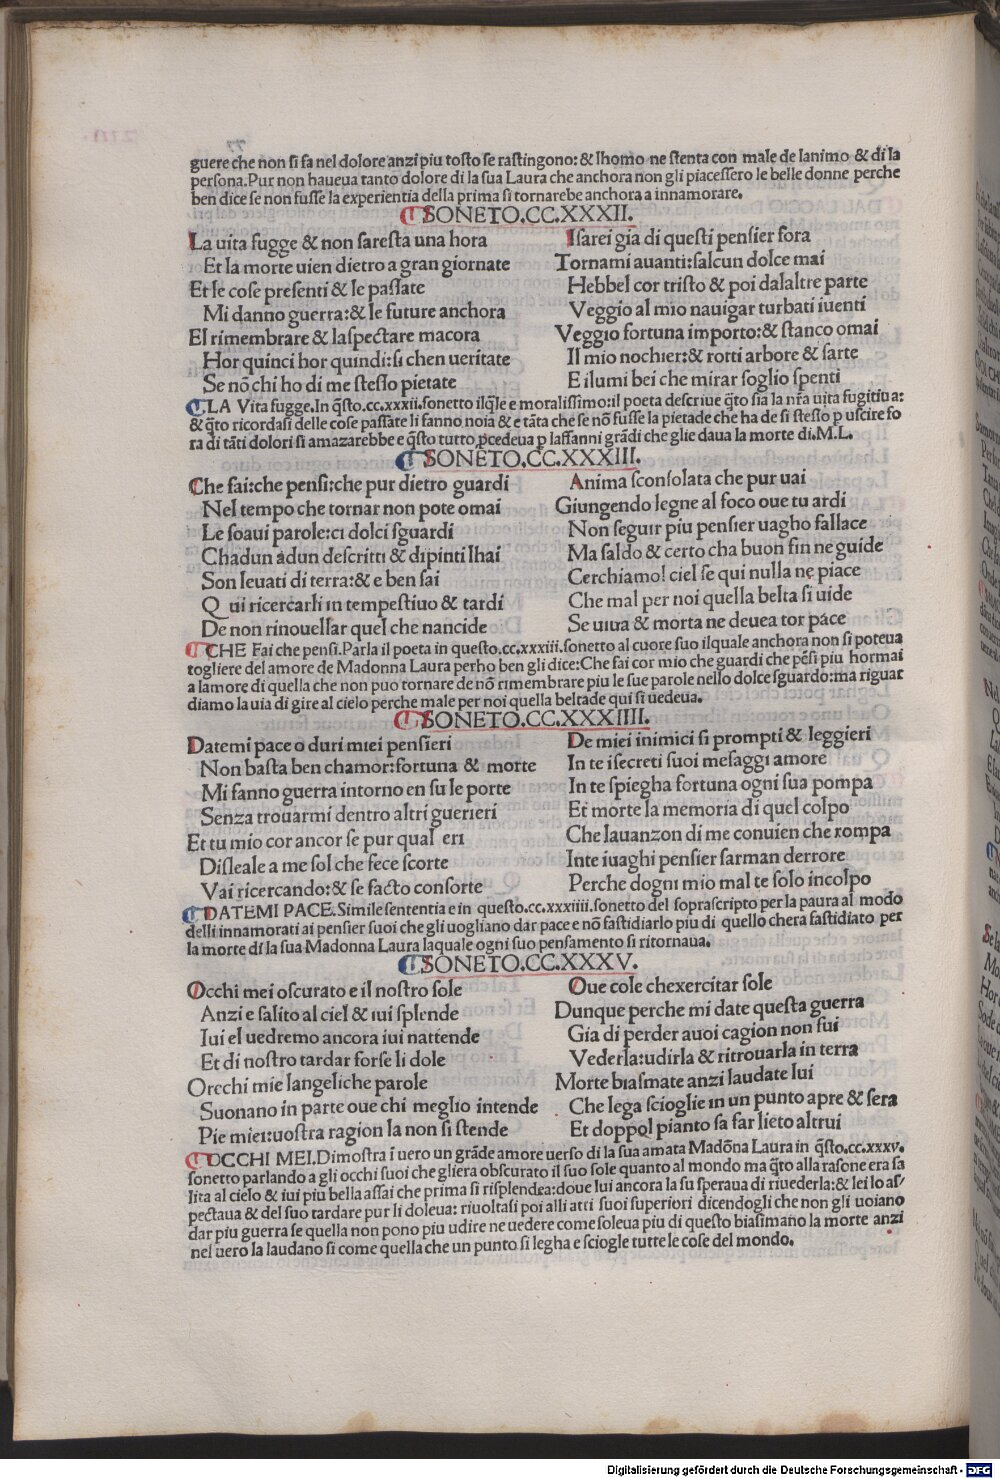 guere che non ſi fa nel dolore anzi piu toſto ſe raſtingono: & lhomo ne ſtenta con male de lanimo & di la
perſona. Pur non haueua tanto dolore di la ſua Laura che anchora non gli piaceſſero le belle donne perche
ben dice ſe non fuſſe la experientia della prima ſi tornarebe anchora a innamorare.
SONETO.CC.XXXII.
La uita fugge & non ſareſta una hora
Et la morte uien dietro a gran giornate
Et le coſe preſenti & le paſſate
Mi danno guerra: & le future anchora
El rimembrare & laſpectare macora
Hor quinci hor quindi: ſi chen ueritate
Se nō chi ho di me ſteſſo pietate
Iſarei gia di queſti penſier fora
Tornami auanti: ſalcun dolce mai
Hebbel cor triſto & poi dalaltre parte
Veggio al mio nauigar turbati iuenti
Veggio fortuna importo: & ſtanco omai
Il mio nochier: & rotti arbore & ſarte
E ilumi bei che mirar ſoglio ſpenti
LA Vita fugge. In q̄ſto.cc.xxxii. ſonetto ilq̄le e moraliſſimo: il poeta deſcriue q̄to ſia la nr̄a uita fugitiua:
& q̄to ricordaſi delle coſe paſſate li fanno noia & e tāta che ſe nō fuſſe la pietade che ha de ſi ſteſſo p uſcire fo
ra di tāti dolori ſi amazarebbe e q̄ſto tutto pcedeua p laſſanni grādi che glie daua la morte di. M.L.
SONETO.CC.XXXIII.
Che fai: che penſi: che pur dietro guardi
Nel tempo che tornar non pote omai
Le ſoaui parole: ci dolci ſguardi
Chadun adun deſcritti & dipinti lhai
Son leuati di terra: & e ben ſai
Qui ricercarli in tempeſtiuo & tardi
De non rinouellar quel che nancide
Anima ſconſolata che pur uai
Giungendo legne al foco oue tu ardi
Non ſeguir piu penſier uagho fallace
Ma ſaldo & certo cha buon fin ne guide
Cerchiamol ciel ſe qui nulla ne piace
Che mal per noi quella belta ſi uide
Se uiua & morta ne deuea tor pace
CHE Fai che penſi. Parla il poeta in queſto.cc.xxxiii. ſonetto al cuore ſuo ilquale anchora non ſi poteua
togliere del amore de Madonna Laura perho ben gli dice: Che fai cor mio che guardi che pēſi piu hormai
a lamore di quella che non puo tornare de nō rimembrare piu le ſue parole nello dolce ſguardo: ma riguar
diamo la uia di gire al cielo perche male per noi quella beltade qui ſi uedeua.
SONETO.CC.XXXIIII.
Datemi pace o duri miei penſieri
Non baſta ben chamor: fortuna & morte
Mi fanno guerra intorno en ſu le porte
Senza trouarmi dentro altri guerieri
Et tu mio cor ancor ſe pur qual eri
Diſleale a me ſol che fece ſcorte
Vai ricercando: & ſe facto conſorte
De miei inimici ſi prompti & leggieri
In te iſecreti ſuoi meſaggi amore
In te ſpiegha fortuna ogni ſua pompa
Et morte la memoria di quel colpo
Che lauanzon di me conuien che rompa
Inte iuaghi penſier ſarman derrore
Perche dogni mio mal te ſolo incolpo
DATEMI PACE. Simile ſententia e in queſto.cc.xxxiiii. ſonetto del ſopraſcripto per la paura al modo
delli innamorati ai penſier ſuoi che gli uogliano dar pace e nō faſtidiarlo piu di quello chera faſtidiato per
la morte di la ſua Madonna Laura laquale ogni ſuo penſamento ſi ritornaua.
SONETO.CC.XXXV.
Occhi mei oſcurato e il noſtro ſole
Anzi e ſalito al ciel & iui ſplende
Iui el uedremo ancora iui nattende
Et di noſtro tardar forſe li dole
Orecchi mie langeliche parole
Suonano in parte oue chi meglio intende
Pie miei: uoſtra ragion la non ſi ſtende
Oue cole chexercitar ſole
Dunque perche mi date queſta guerra
Gia di perder auoi cagion non fui
Vederla: udirla & ritrouarla in terra
Morte biaſmate anzi laudate lui
Che lega ſcioglie in un punto apre & ſera
Et doppol pianto ſa far lieto altrui
OCCHI MEI. Dimoſtra ī uero un grāde amore uerſo di la ſua amata Madōna Laura in q̄ſto.cc.xxxv.
ſonetto parlando a gli occhi ſuoi che gliera obſcurato il ſuo ſole quanto al mondo ma q̄to alla raſone era ſa
lita al cielo & iui piu bella aſſai che prima ſi riſplendea: doue lui ancora la ſu ſperaua di riuederla: & lei lo aſ
pectaua & del ſuo tardare pur li doleua: riuoltaſi poi alli atri ſuoi ſuperiori dicendogli che non gli uoiano
dar piu guerra ſe quella non pono piu udire ne uedere come ſoleua piu di queſto biaſimano la morte anzi
nel uero la laudano ſi come quella che un punto ſi legha e ſciogle tutte le coſe del mondo.
Digitalisierung gefördert durch die Deutsche Forschungsgemeinschaft - DFG